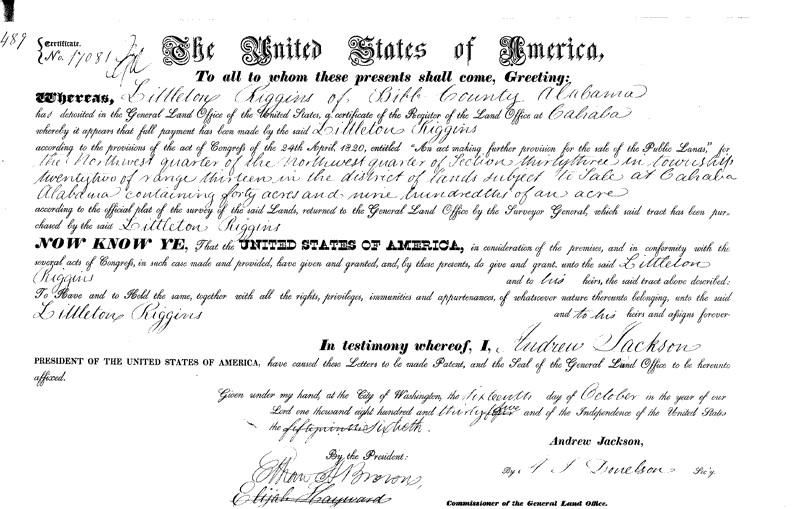 489
Certificate.
No. 17081
The United States of America,
To all to whom these presents shall come, Greeting:
Whereas, Littleton Riggins of Bibb County Alabama
has deposited in the General Land Office of the United States, a certificate of the Register of the Land Office at Cahaba
whereby it appears that full payment has been made by the said Littleton Riggins
according to the provisions of the act of Congress of the 24th April, 1820, entitled "An act making further provision for the sale of the Public Lands," for
the Northwest quarter of the Northwest quarter of Section thirtythree in township
twentytwo of range thirteen in the district of lands subject to Sale at Cahaba
Alabama containing forty acres and nine hundredths of an acre
according to the official plat of the survey of the said Lands, returned to the General Land Office by the Surveyor General, which said tract has been pur-
chased by the said Littleton Riggins
NOW KNOW YE, That the UNITED STATES OF AMERICA, in consideration of the premises, and in conformity with the
several acts of Congress, in such case made and provided, have given and granted, and, by these presents, do give and grant, unto the said Littleton
Riggins and to his heirs, the said tract above described:
To Have and to Hold the same, together with all the rights, privileges, immunities and appurtenances, of whatsoever nature thereunto belonging, unto the said
Littleton Riggins and to his heirs and assigns forever
In testimony whereof, I, Andrew Jackson
PRESIDENT OF THE UNITED STATES OF AMERICA, have caused these Letters to be made Patent, and the Seal of the General Land Office to be hereunto
affixed.
Given under my hand, at the City of Washington, the sixteenth day of October in the year of our
Lord one thousand eight hundred and thirty five and of the Independence of the United States
the fiftyninth sixtieth.
Andrew Jackson,
By the President:
By A J Donelson Sec'y.
Ethan A Brown,
Elijah Hayward
Commissioner of the General Land Office.